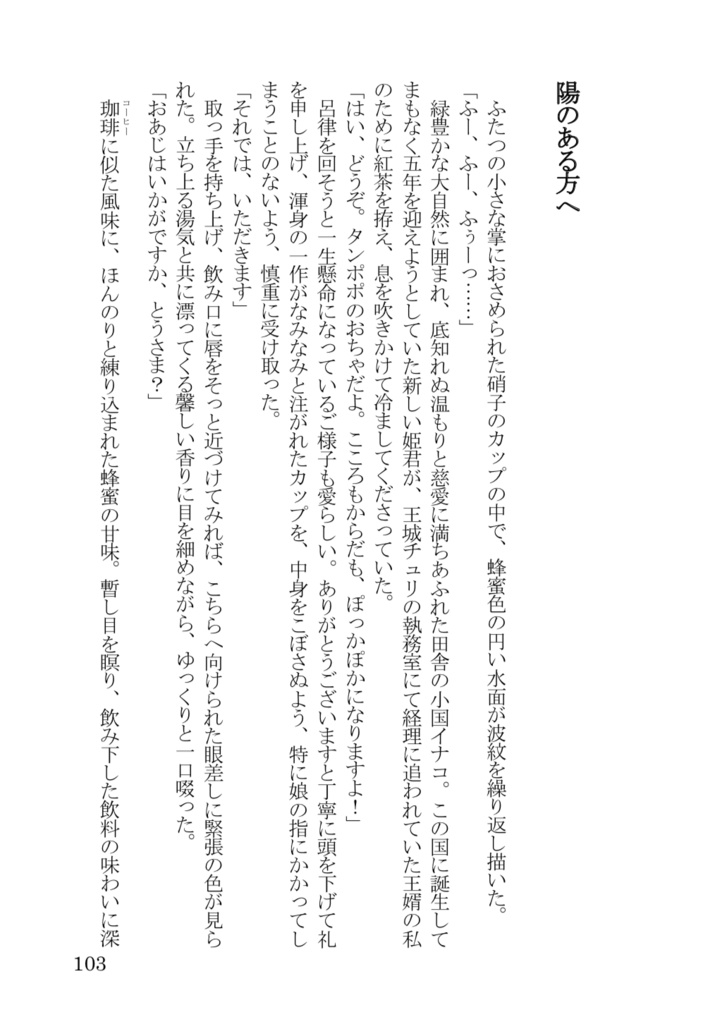 陽のある方へ
ふたつの小さな掌におさめられた硝子のカップの中で、蜂蜜色の円い水面が波紋を繰り返し描いた。
「ふー、ふー、ふぅーっ……」
緑豊かな大自然に囲まれ、底知れぬ温もりと慈愛に満ちあふれた田舎の小国イナコ。この国に誕生して
まもなく五年を迎えようとしていた新しい姫君が、王城チュリの執務室にて経理に追われていた王婿の私
のために紅茶を拵え、息を吹きかけて冷ましてくださっていた。
「はい、どうぞ。タンポポのおちゃだよ。こころもからだも、ぽっかぽかになりますよ！」
呂律を回そうと一生懸命になっているご様子も愛らしい。ありがとうございますと丁寧に頭を下げて礼
を申し上げ、渾身の一作がなみなみと注がれたカップを、中身をこぼさぬよう、特に娘の指にかかってし
まうことのないよう、慎重に受け取った。
「それでは、いただきます」
取っ手を持ち上げ、飲み口に唇をそっと近づけてみれば、こちらへ向けられた眼差しに緊張の色が見ら
れた。立ち上る湯気と共に漂ってくる馨しい香りに目を細めながら、ゆっくりと一口啜った。
「おあじはいかがですか、とうさま？」
珈琲コーヒーに似た風味に、ほんのりと練り込まれた蜂蜜の甘味。暫し目を瞑り、飲み下した飲料の味わいに深
103